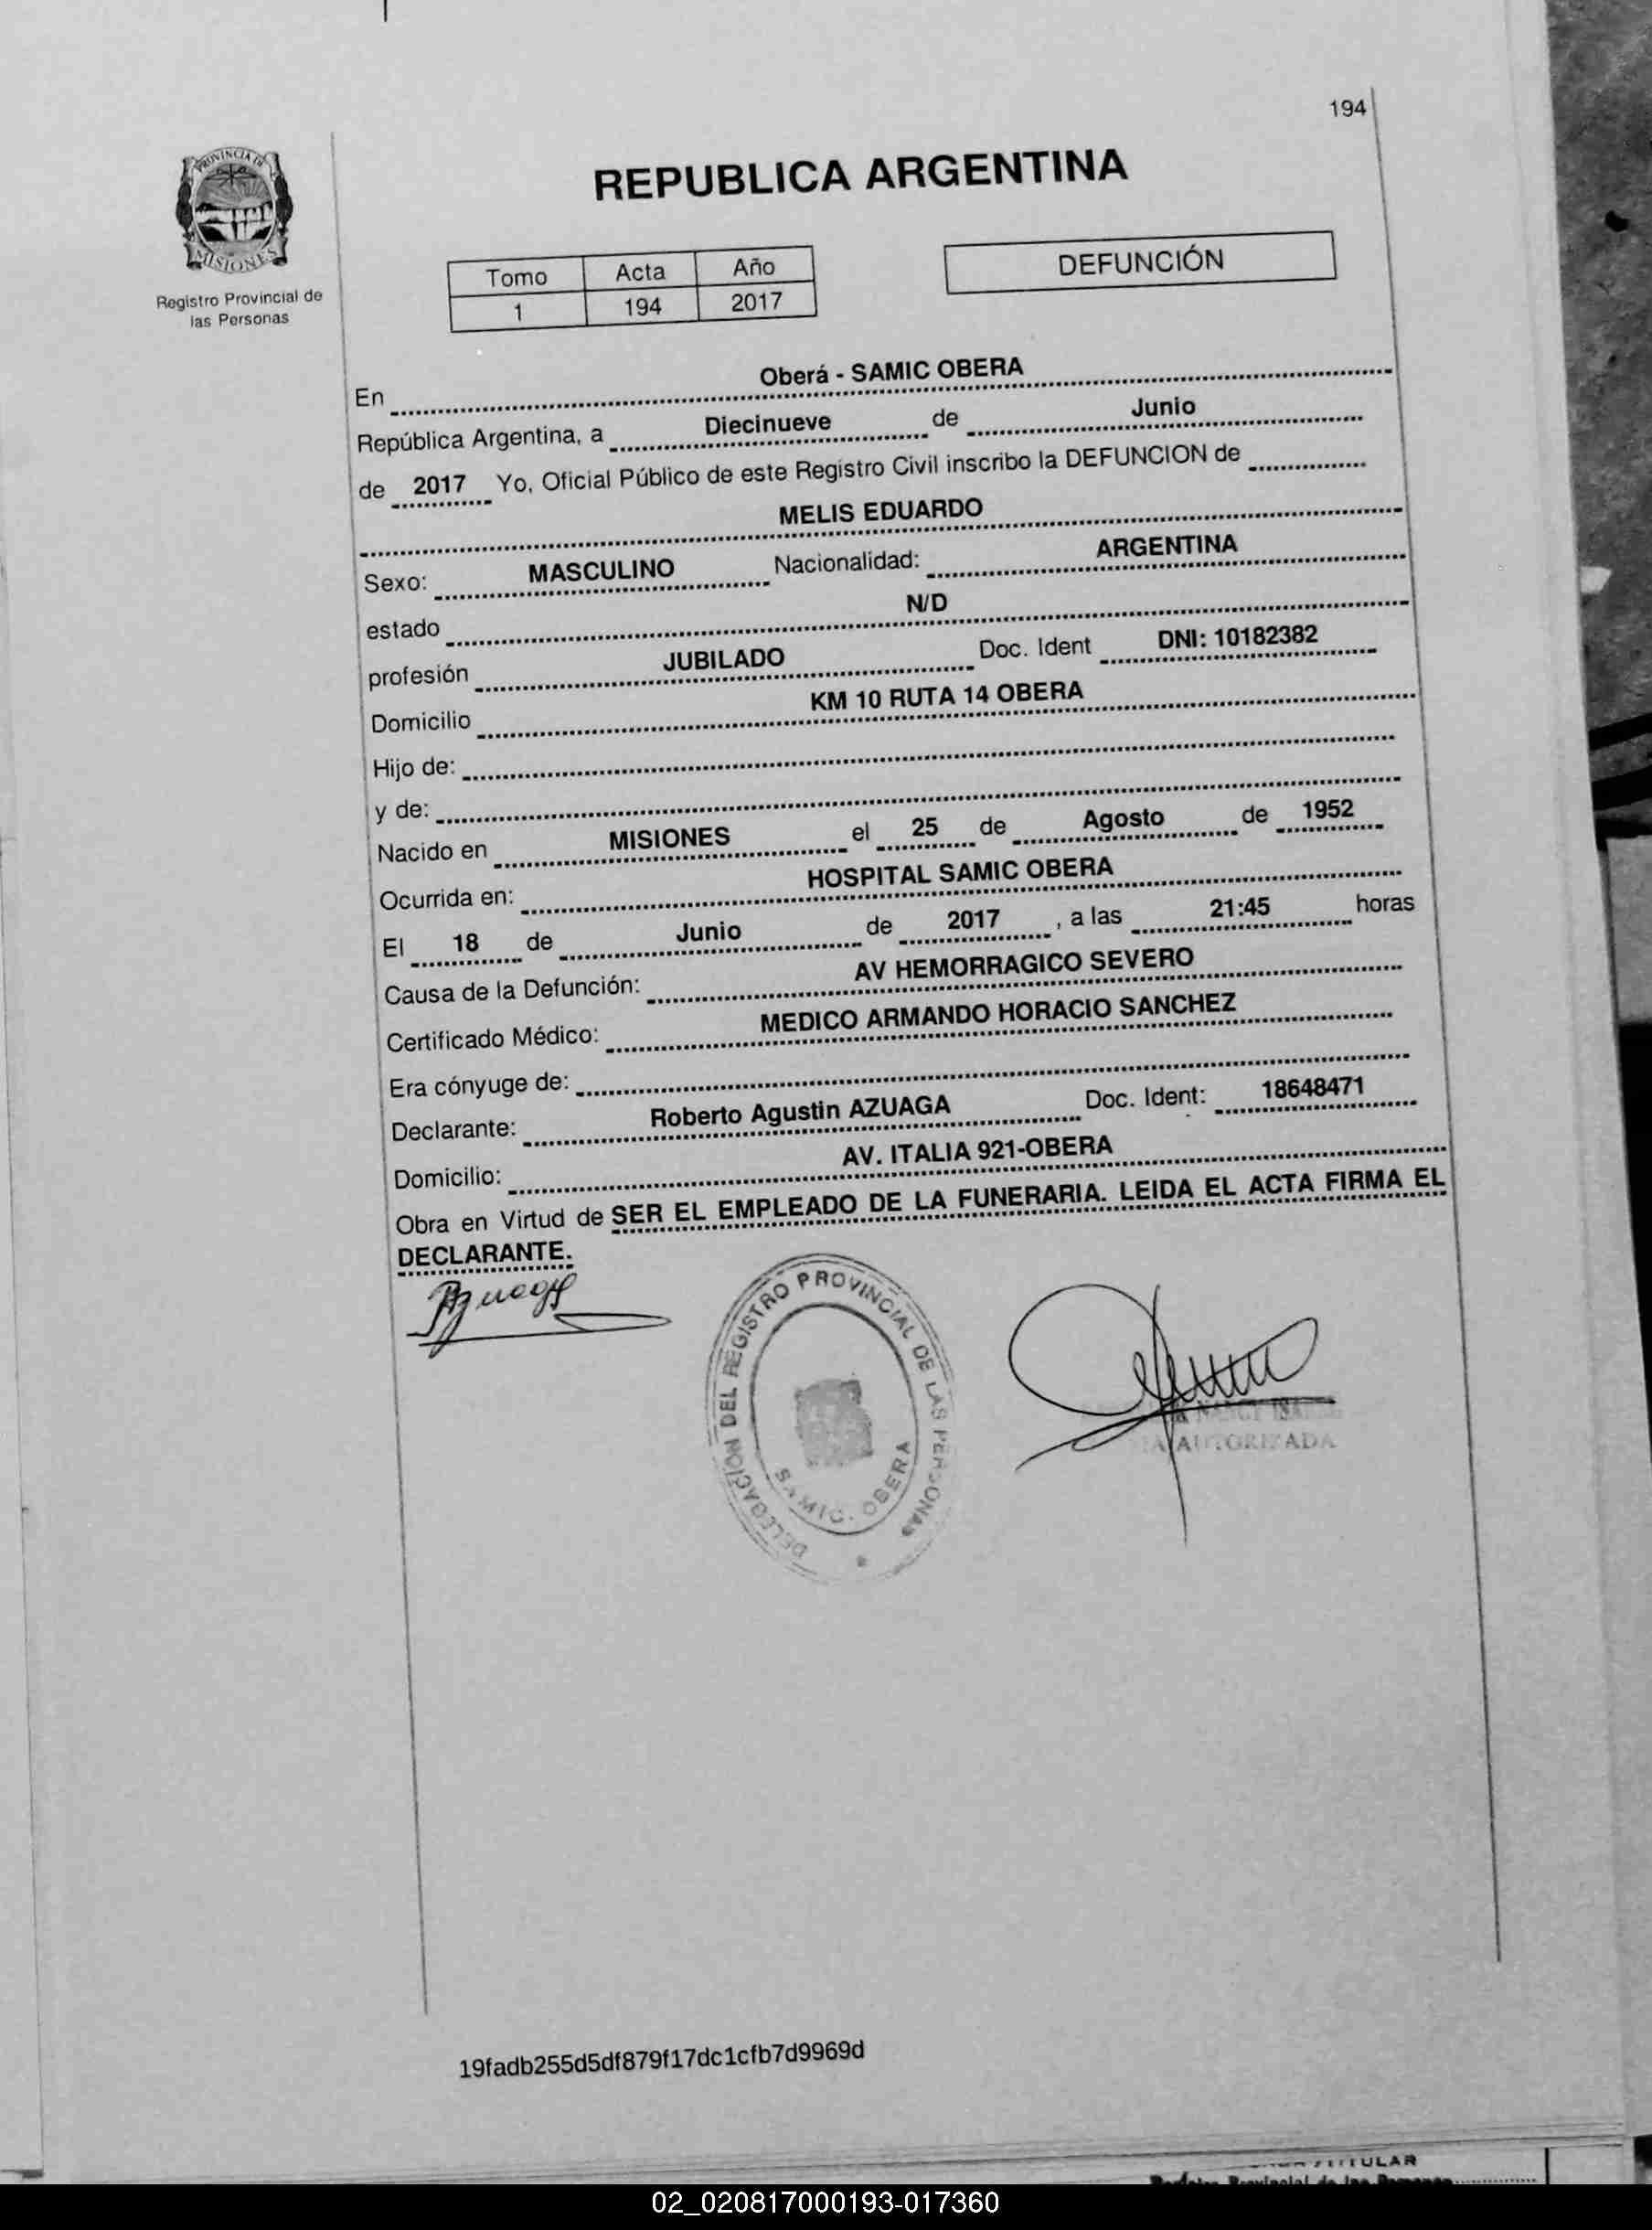 194
PROVINCIA DE
MISIONES
Registro Provincial de
las Personas
REPUBLICA ARGENTINA
Tomo Acta Año
1 194 2017
DEFUNCIÓN
En Oberá - SAMIC OBERA
República Argentina, a Diecinueve de Junio
de 2017 Yo, Oficial Público de este Registro Civil inscribo la DEFUNCION de
MELIS EDUARDO
Sexo: MASCULINO Nacionalidad: ARGENTINA
estado N/D
profesión JUBILADO Doc. Ident DNI: 10182382
Domicilio KM 10 RUTA 14 OBERA
Hijo de:
y de:
Nacido en MISIONES el 25 de Agosto de 1952
Ocurrida en: HOSPITAL SAMIC OBERA
El 18 de Junio de 2017 , a las 21:45 horas
Causa de la Defunción: AV HEMORRAGICO SEVERO
Certificado Médico: MEDICO ARMANDO HORACIO SANCHEZ
Era cónyuge de:
Declarante: Roberto Agustin AZUAGA Doc. Ident: 18648471
Domicilio: AV. ITALIA 921-OBERA
Obra en Virtud de SER EL EMPLEADO DE LA FUNERARIA. LEIDA EL ACTA FIRMA EL
DECLARANTE.
DELEGACION DEL REGISTRO PROVINCIAL DE LAS PERSONAS
SAMIC. OBERA
NANCY
AUTORIZADA
19fadb255d5df879f17dc1cfb7d9969d
TITULAR
02_020817000193-017360